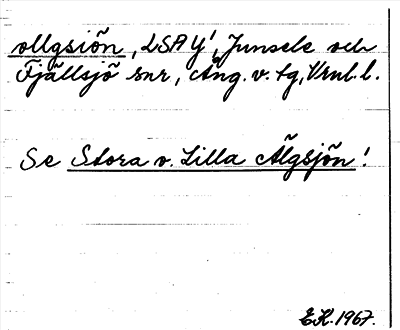 ollgsiön, LSA Y', Junsele och
Fjällsjö snr, Ång. v. tg, Vrnl. l.
Se Stora v. Lilla Älgsjön!
E.K. 1967.